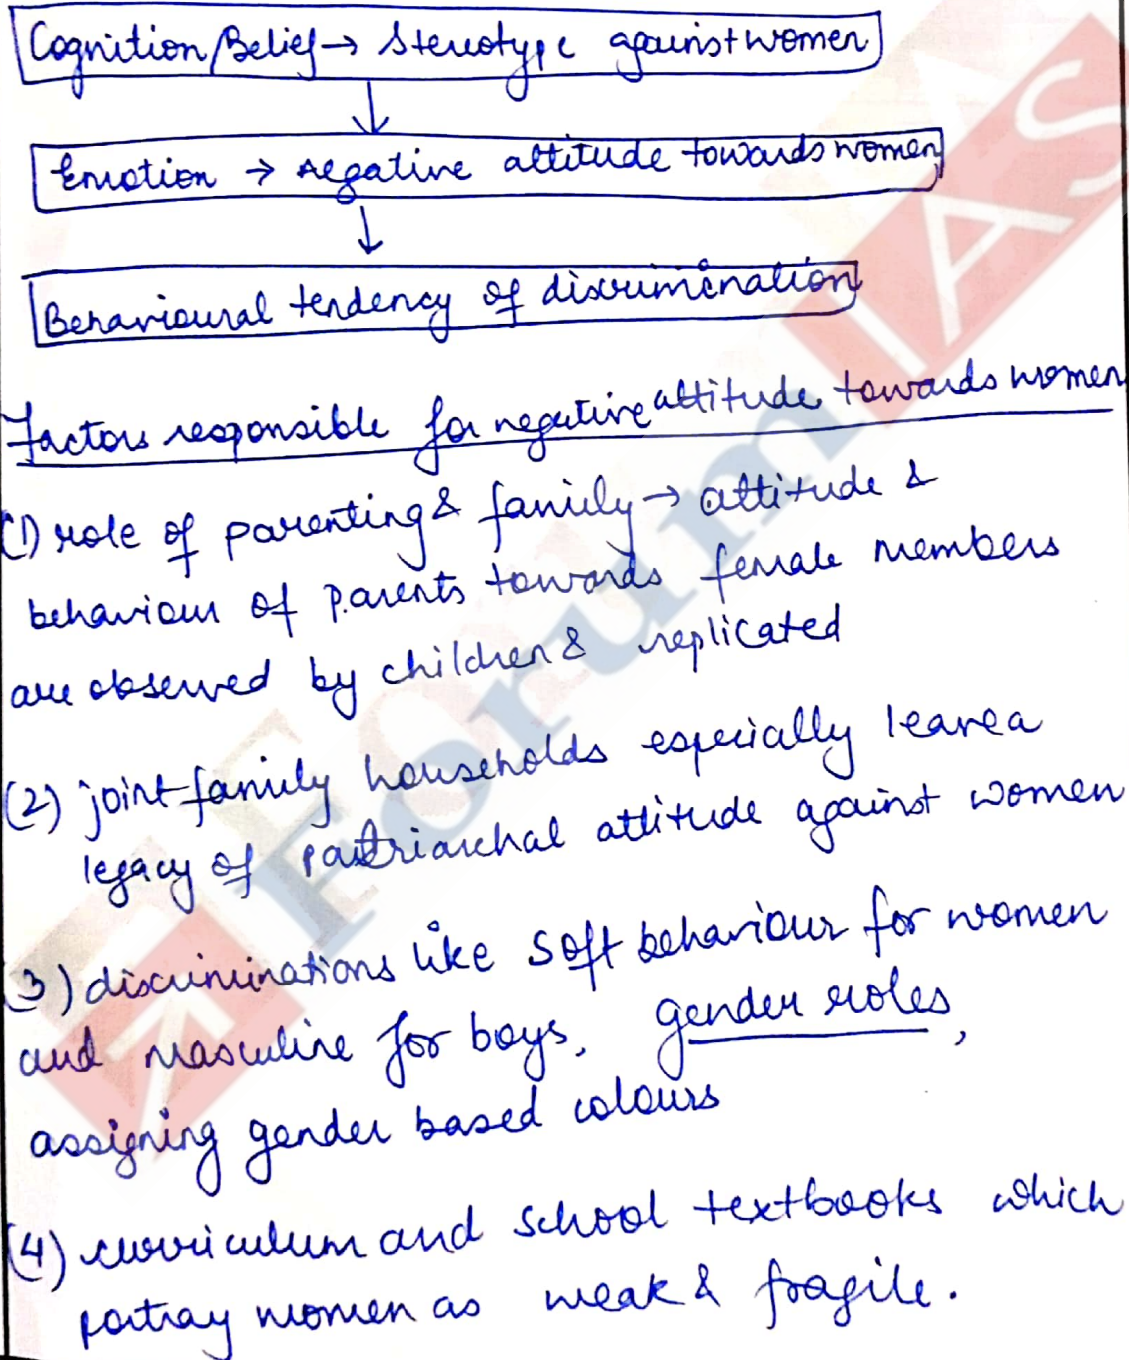 Cognition/Belief → Stereotype against women
Emotion → negative attitude towards women
Behavioural tendency of discrimination
Factors responsible for negative attitude towards women
(1) role of parenting & family → attitude &
behaviour of parents towards female members
are observed by children & replicated
(2) joint family households especially leave a
legacy of patriarchal attitude against women
(3) discriminations like soft behaviour for women
and masculine for boys, gender roles,
assigning gender based colours
(4) curriculum and school textbooks which
portray women as weak & fragile.
ForumIAS